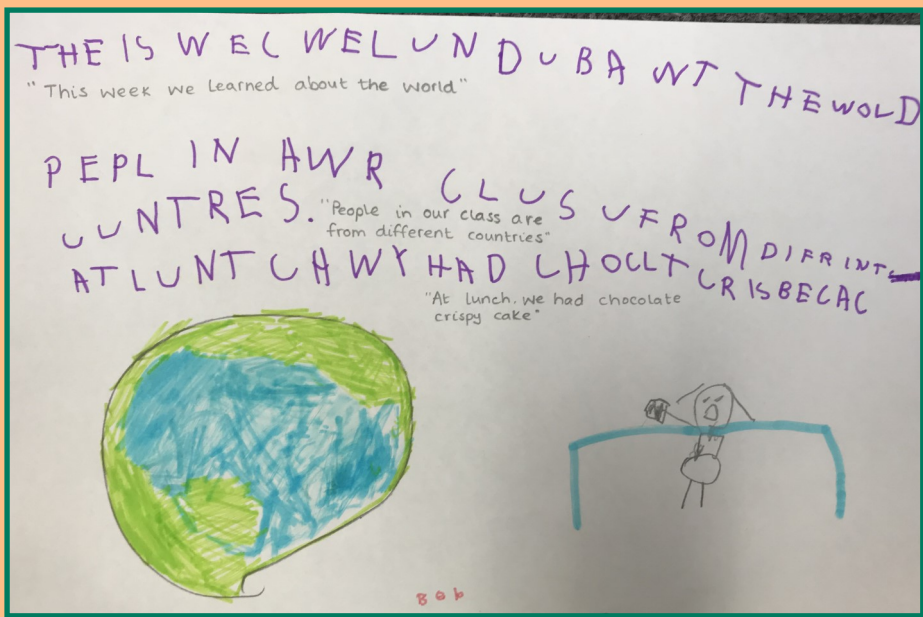 THE IS WEC WEL UN DUBA WT THE WOLD
"This week we learned about the world"
PEPL IN AWR CLUS U FROM DIFRINT
CUNTRES.
"People in our class are
from different countries"
AT LUNTCH WY HAD CHOCLT CRISBECAC
"At lunch. we had chocolate
crispy cake"
Bob